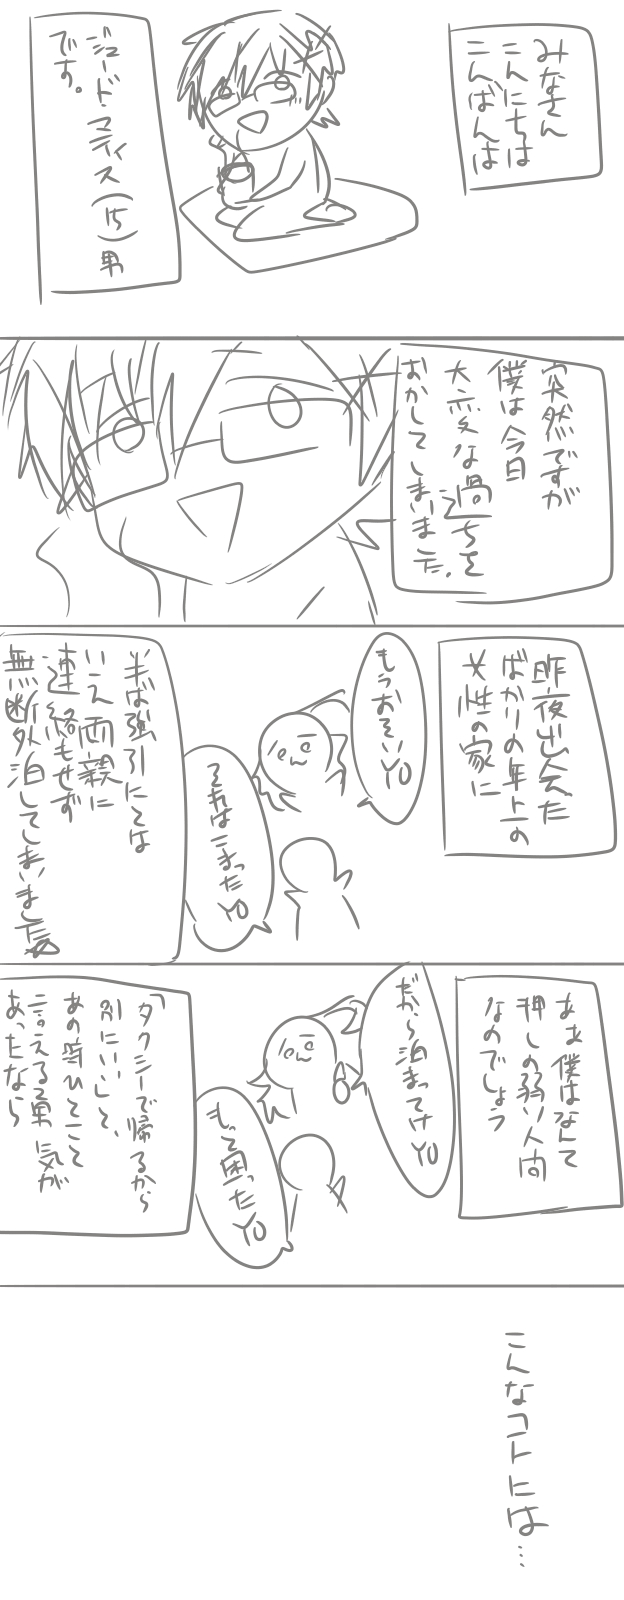 みなさん
こんにちは
こんばんは
ジュード・マティス(15)男
です。
突然ですが
僕は今日
大変な過ちを
おかしてしまいました。
昨夜出会った
ばかりの年上の
女性の家に
もうおそいYO
それはこまったYO
半ば強引にとは
いえ両親に
連絡もせず
無断外泊してしまいました
ああ僕はなんて
押しの弱い人間
なのでしょう
だから泊まってけYO
もっと困ったYO
「タクシーで帰るから
別にいい」と、
あの時ひとこと
言える勇気が
あったなら
こんなコトには…